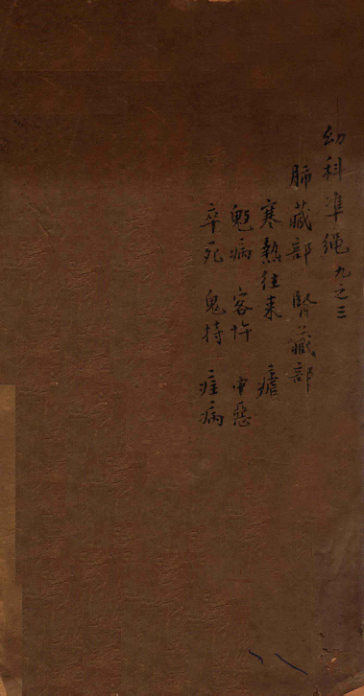 幼科準繩九之三
肺藏部 腎藏部
寒熱往來 瘧
鬾病 客忤 中惡
卒死 鬼持 疰病